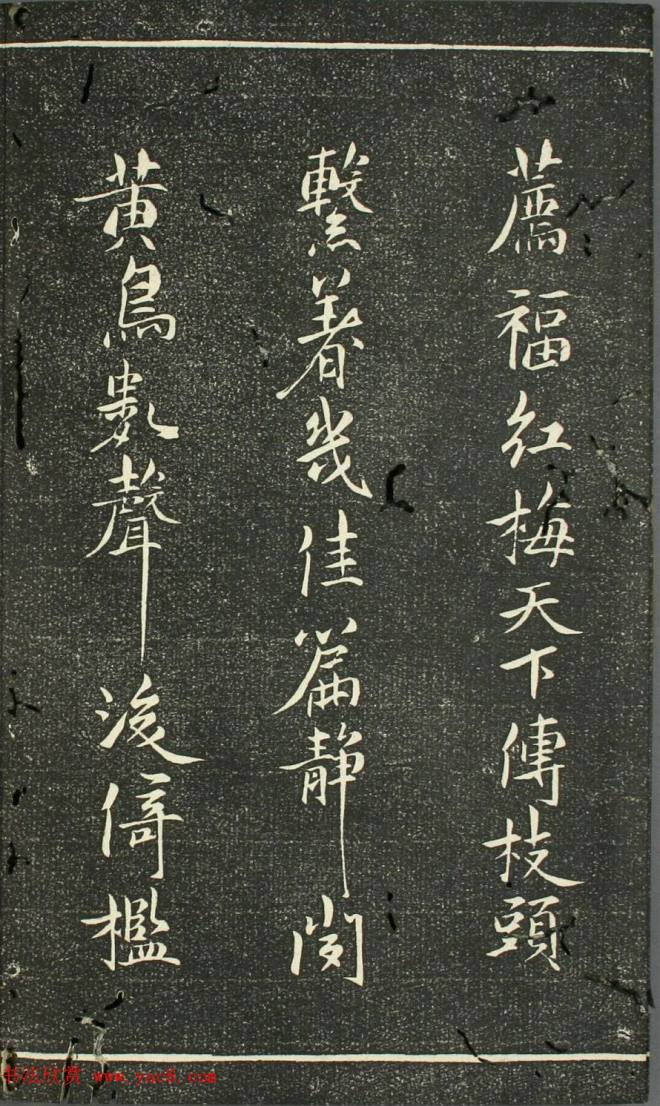 薦福紅梅天下傳枝頭
繫著幾佳篇靜閲
黃鳥數聲後倚檻
书法欣赏 www.yac8.com